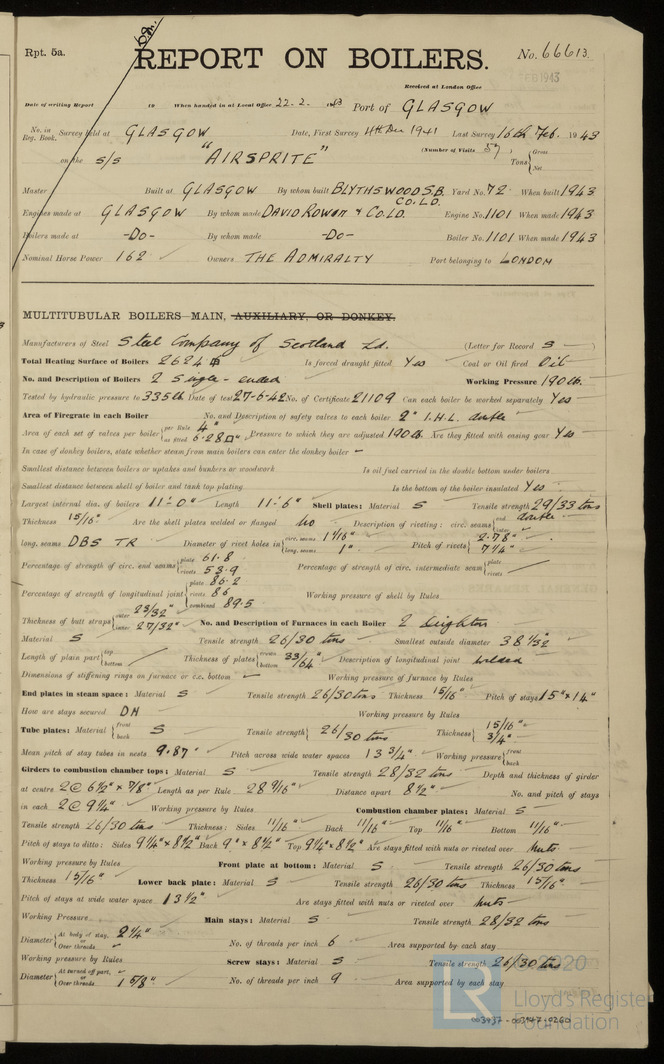 Rpt. 5a.
REPORT ON BOILERS.
No. 66613.
Received at London Office
FEB 1943
Date of writing Report 19 When handed in at Local Office 22.2. 1943 Port of GLASGOW
No. in Reg. Book. Survey held at GLASGOW Date, First Survey 4th Dec 1941 Last Survey 16th Feb. 1943
(Number of Visits 57)
on the S/S "AIRSPRITE" Tons { Gross Net
Master Built at GLASGOW By whom built BLYTHSWOOD S.B. CO. LD. Yard No. 72 When built 1943
Engines made at GLASGOW By whom made DAVID ROWAN & CO. LD. Engine No. 1101 When made 1943
Boilers made at -DO- By whom made -DO- Boiler No. 1101 When made 1943
Nominal Horse Power 162 Owners THE ADMIRALTY Port belonging to LONDON
MULTITUBULAR BOILERS—MAIN, AUXILIARY, OR DONKEY.
Manufacturers of Steel Steel Company of Scotland Ld. (Letter for Record S )
Total Heating Surface of Boilers 2624 Is forced draught fitted Yes Coal or Oil fired Oil
No. and Description of Boilers 2 Single-ended Working Pressure 190 lb.
Tested by hydraulic pressure to 335 lb Date of test 27-6-42 No. of Certificate 21109 Can each boiler be worked separately Yes
Area of Firegrate in each Boiler No. and Description of safety valves to each boiler 2" I.H.L. double
Area of each set of valves per boiler { per Rule 4" as fitted 6.28□" Pressure to which they are adjusted 190 lb. Are they fitted with easing gear Yes
In case of donkey boilers, state whether steam from main boilers can enter the donkey boiler -
Smallest distance between boilers or uptakes and bunkers or woodwork Is oil fuel carried in the double bottom under boilers
Smallest distance between shell of boiler and tank top plating Is the bottom of the boiler insulated Yes
Largest internal dia. of boilers 11'-0" Length 11'-6" Shell plates: Material S Tensile strength 29/33 tons
Thickness 15/16" Are the shell plates welded or flanged No Description of riveting: circ. seams { end double inter.
long. seams DBS TR Diameter of rivet holes in { circ. seams 1 1/16" long. seams 1" Pitch of rivets { 2.78" 7 1/4"
Percentage of strength of circ. end seams { plate 61.8 rivets 53.9 Percentage of strength of circ. intermediate seam { plate rivets
Percentage of strength of longitudinal joint { plate 86.2 rivets 86 combined 89.5 Working pressure of shell by Rules
Thickness of butt straps { outer 23/32" inner 27/32" No. and Description of Furnaces in each Boiler 2 Deighton
Material S Tensile strength 26/30 tons Smallest outside diameter 38 1/32
Length of plain part { top bottom Thickness of plates { crown bottom 33/64" Description of longitudinal joint welded
Dimensions of stiffening rings on furnace or c.c. bottom Working pressure of furnace by Rules
End plates in steam space: Material S Tensile strength 26/30 tons Thickness 15/16" Pitch of stays 15" x 14"
How are stays secured DN Working pressure by Rules
Tube plates: Material { front back S Tensile strength { 26/30 tons Thickness { 15/16" 3/4"
Mean pitch of stay tubes in nests 9.87" Pitch across wide water spaces 13 3/4" Working pressure { front back
Girders to combustion chamber tops: Material S Tensile strength 28/32 tons Depth and thickness of girder
at centre 2 @ 6 1/2" x 7/8" Length as per Rule 28 9/16" Distance apart 8 1/2" No. and pitch of stays
in each 2 @ 9 1/4" Working pressure by Rules Combustion chamber plates: Material S
Tensile strength 26/30 tons Thickness: Sides 11/16" Back 11/16" Top 11/16" Bottom 11/16"
Pitch of stays to ditto: Sides 9 1/4" x 8 1/2" Back 9" x 8 1/2" Top 9 1/4" x 8 1/2" Are stays fitted with nuts or riveted over Nuts
Working pressure by Rules Front plate at bottom: Material S Tensile strength 26/30 tons
Thickness 15/16" Lower back plate: Material S Tensile strength 26/30 tons Thickness 15/16"
Pitch of stays at wide water space 13 1/2" Are stays fitted with nuts or riveted over nuts
Working Pressure Main stays: Material S Tensile strength 28/32 tons
Diameter { At body of stay, or Over threads 2 1/4" No. of threads per inch 6 Area supported by each stay
Working pressure by Rules Screw stays: Material S Tensile strength 26/30 tons
Diameter { At turned off part, or Over threads 1 5/8" No. of threads per inch 9 Area supported by each stay
©2020
LR Lloyd's Register
Foundation
003937-003947-0260